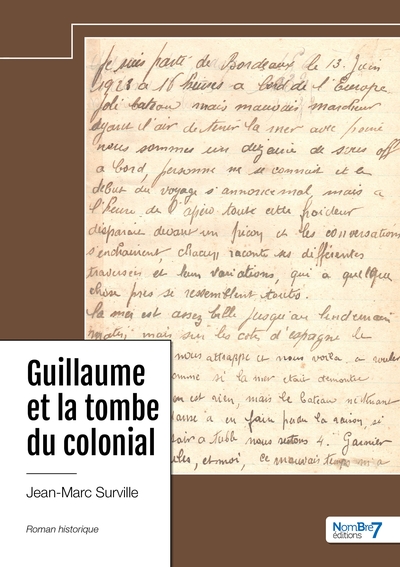 Je suis parti de Bordeaux le 13 Juin
1923 à 16 heures a bord de l'Europe
joli bateau mais mauvais marcheur
ayant l'air de tenir la mer avec peine
nous sommes une dizaine de sous off
a bord, personne ne se connait et le
debut du voyage s'annonce mal, mais a
l'heure de l'apéro toute cette froideur
disparait devant un picon et les conversations
s'enchainent, chacun raconte ses différentes
traversées et leurs variations, qui a quelque
chose pres se ressemblent toutes.
la mer est assez belle jusqu'au lendemain
matin, mais sur les cotes d'espagne le
nous attrappe et nous voila a rouler
omme si la mer etait demontée
en est rien, mais le bateau
a en faire perdre la raison, si
a table nous restons 4. Garnier
et moi, ce mauvais temps
Guillaume
et la tombe
du colonial
Jean-Marc Surville
Roman historique
NomBre7
éditions